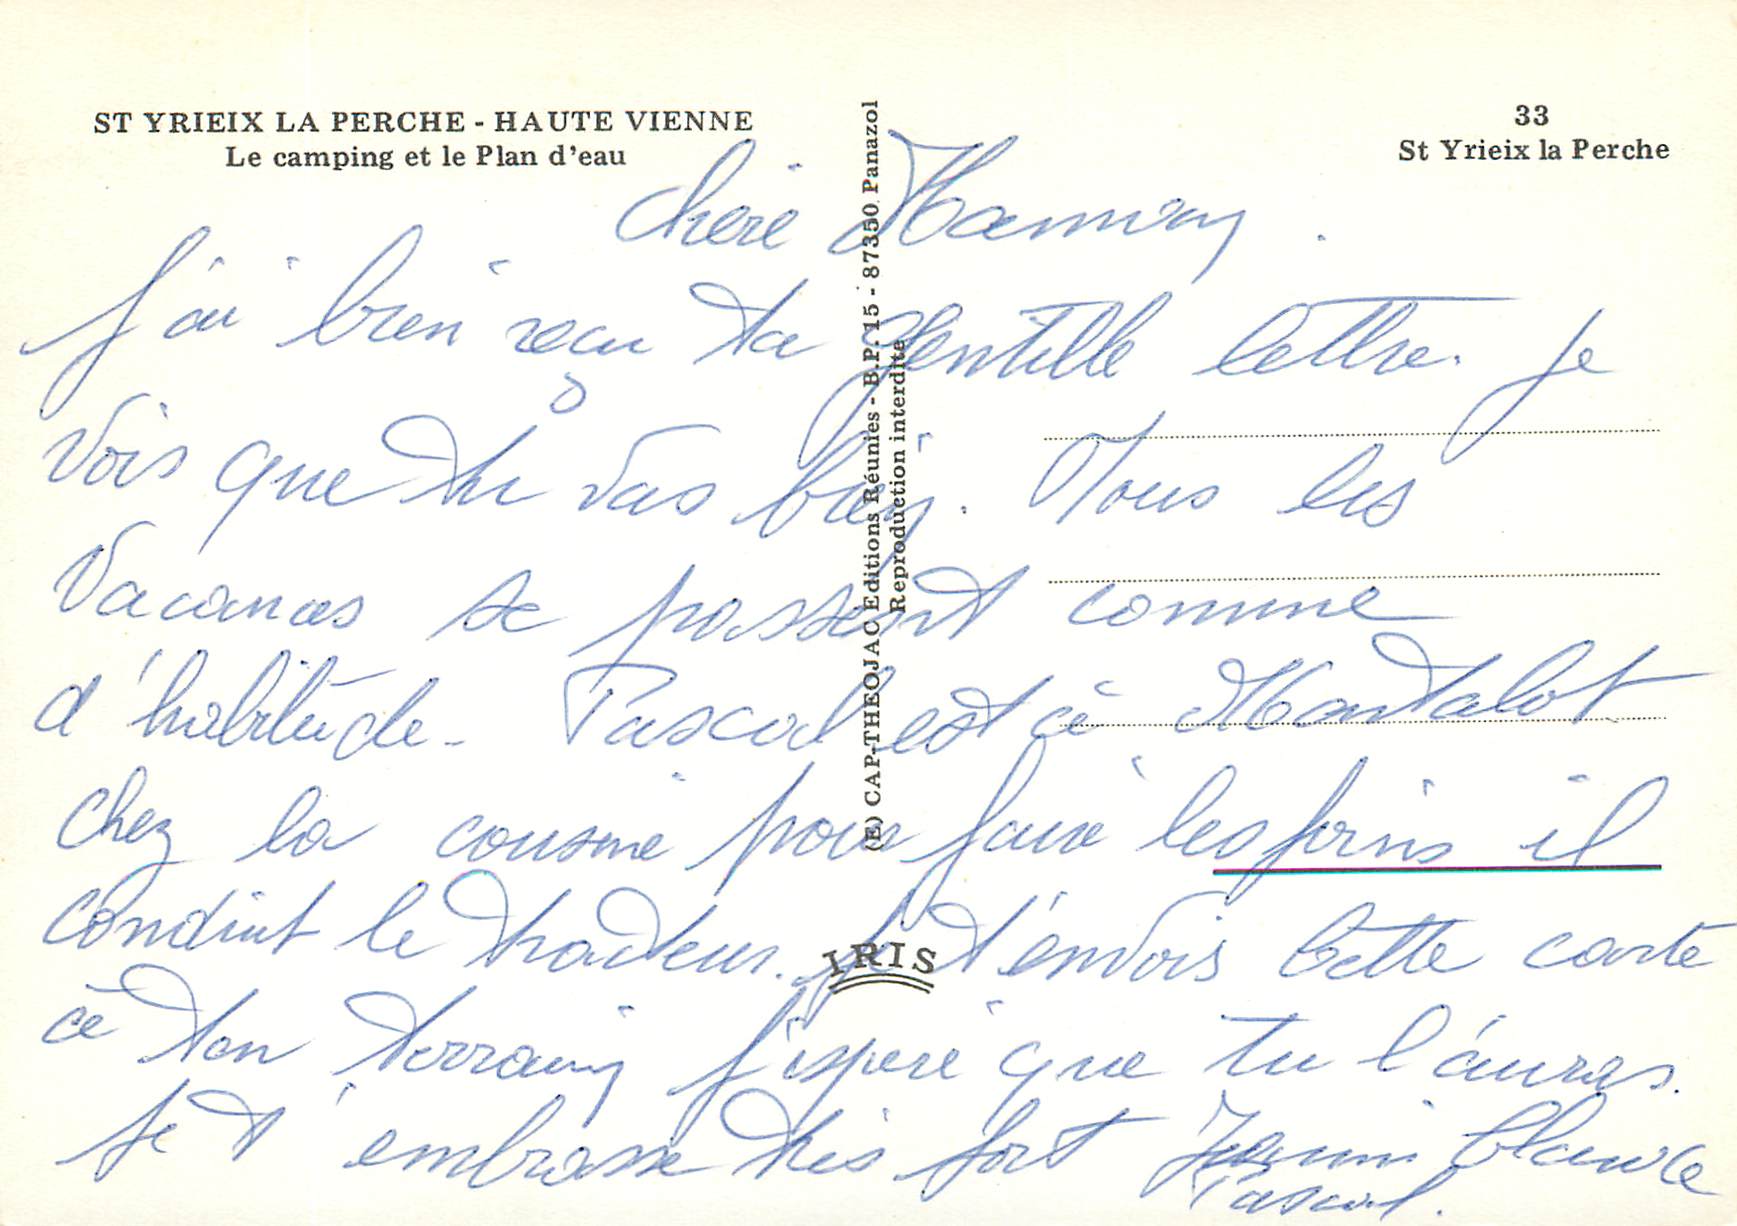 ST YRIEIX LA PERCHE - HAUTE VIENNE
Le camping et le Plan d'eau
33
St Yrieix la Perche
(E) CAP-THEOJAC Editions Réunies - B.P. 15 - 87350 Panazol
Reproduction interdite
IRIS
chère
j'ai bien reçu ta gentille lettre. je
vois que tu vas bien. Nous les
vacances se passent comme
d'habitude - Pascal est à Montalot
chez la cousine pour faire les foins il
conduit le tracteur. je t'envois cette carte
à ton terrain j'espère que tu l'auras.
je t'embrasse très fort Claude
Pascal.